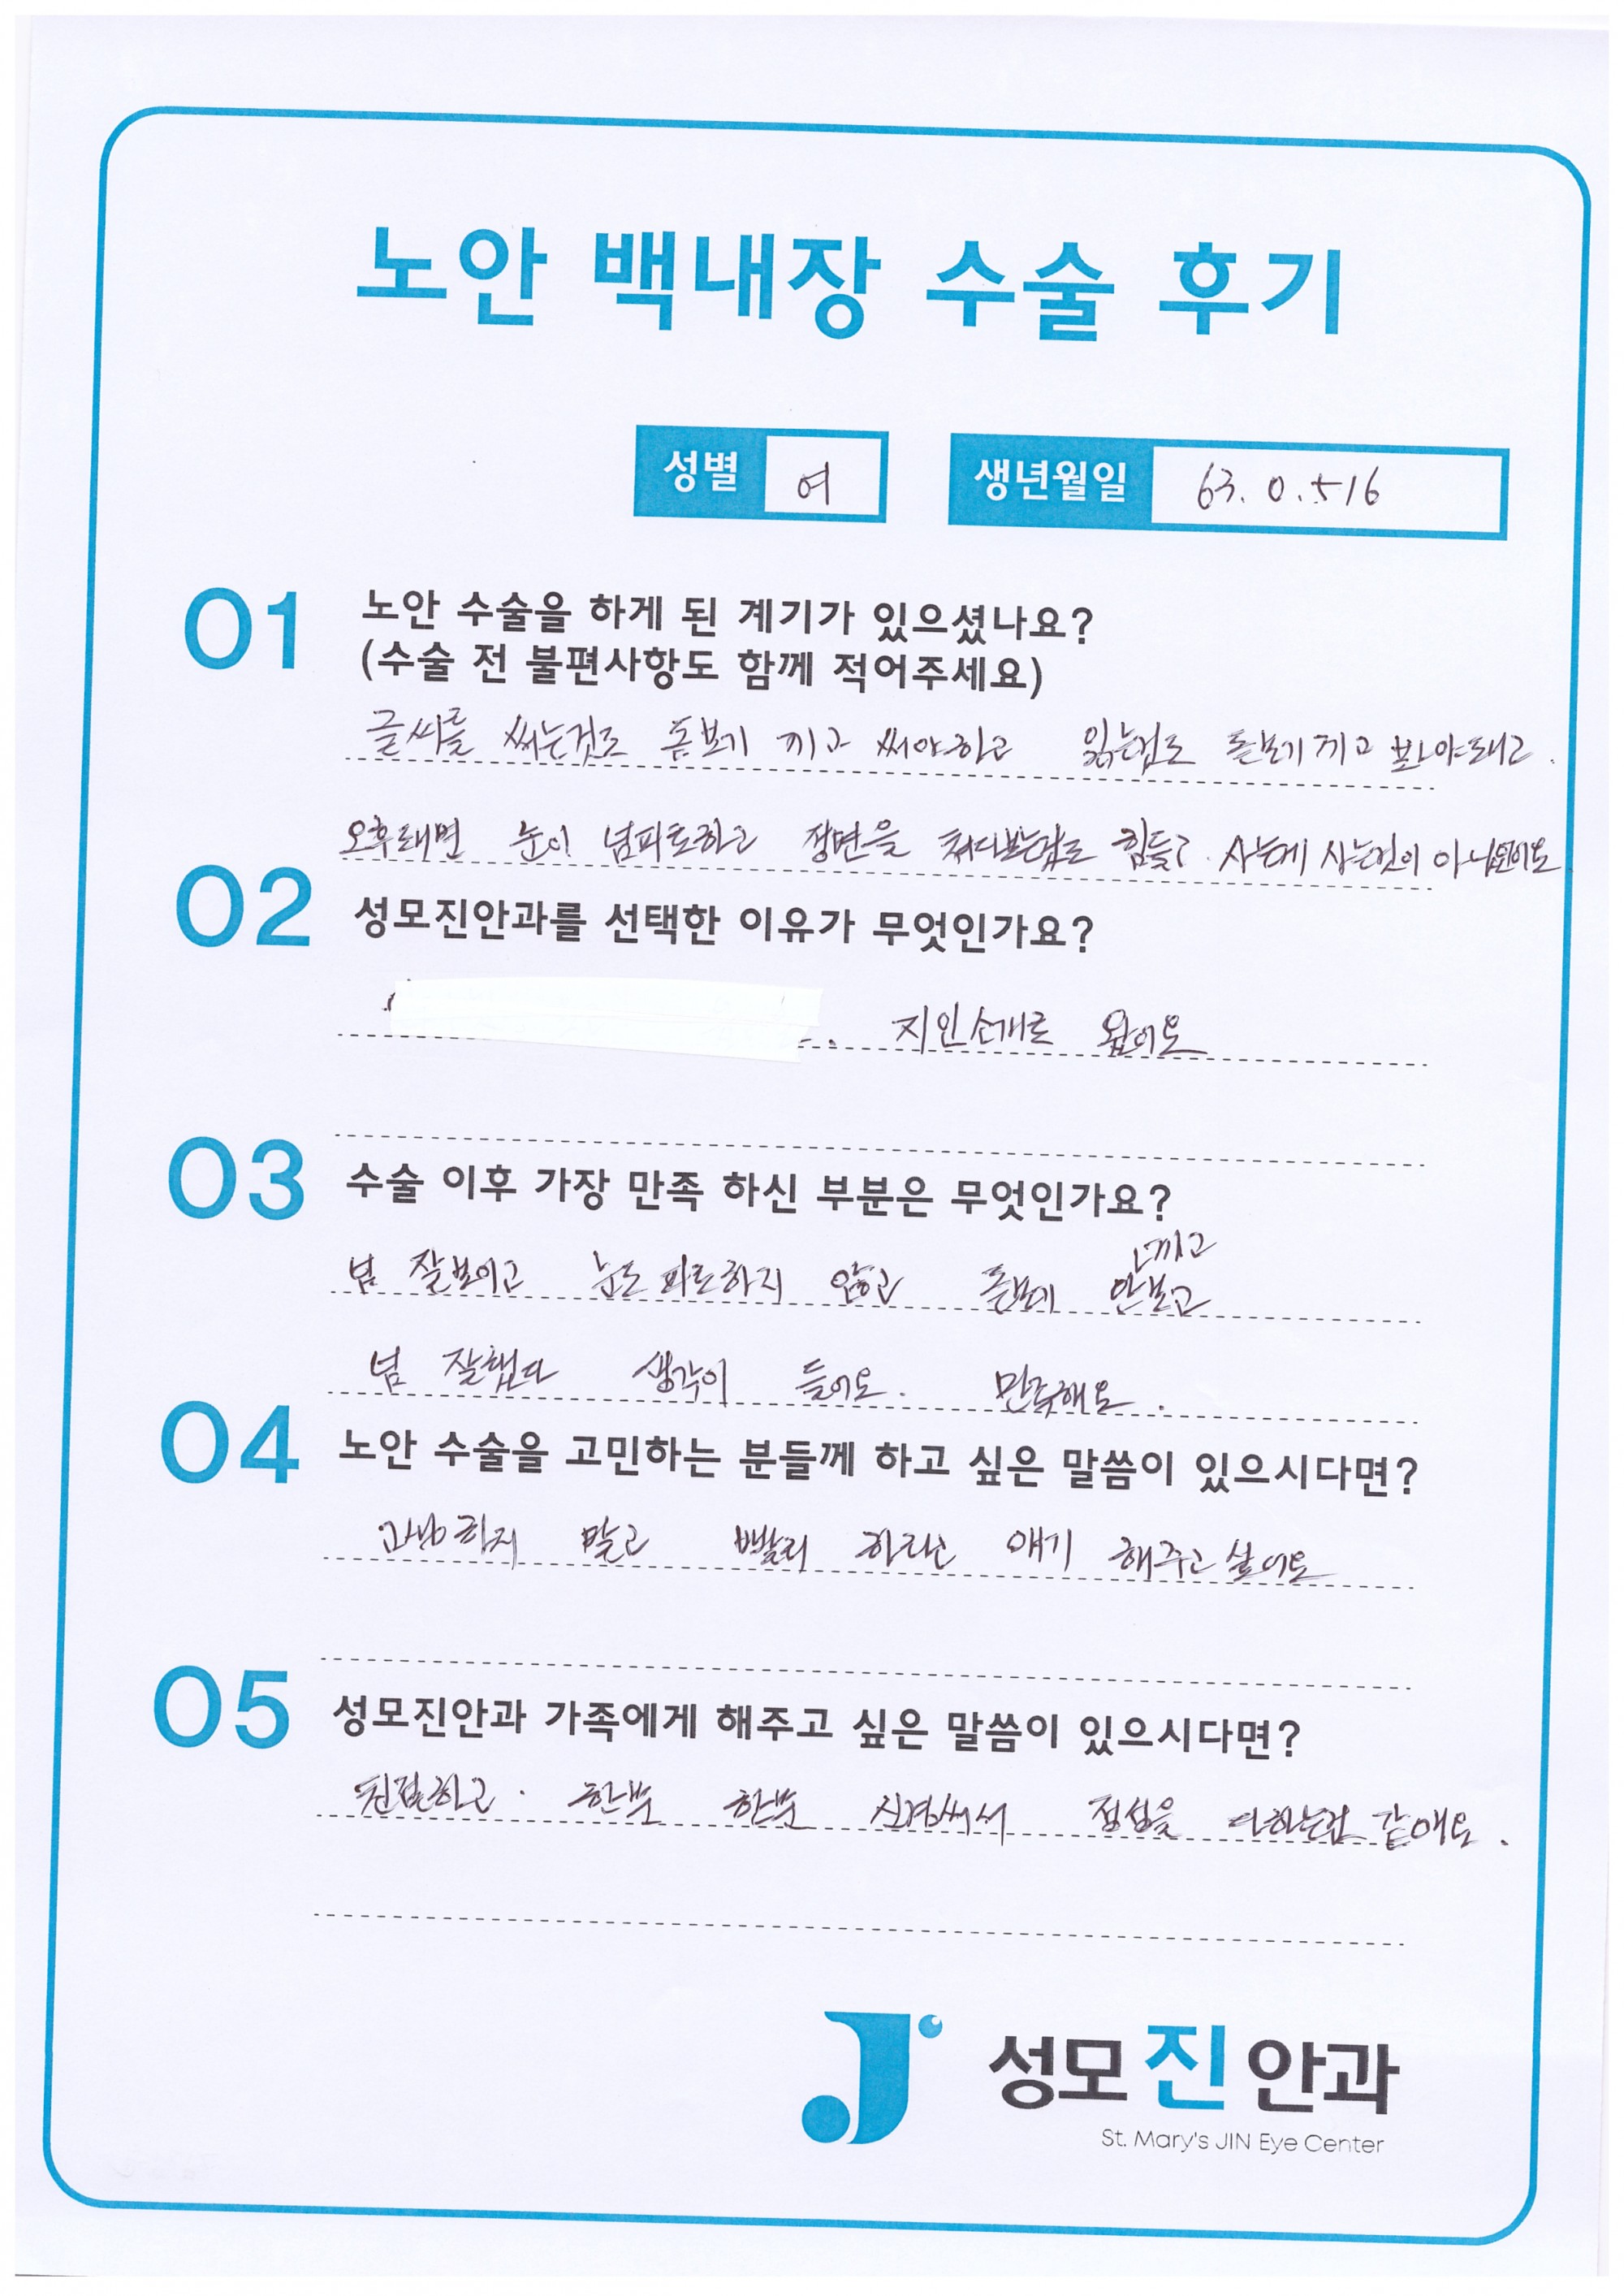 노안 백내장 수술 후기
성별 여 생년월일 63.0.516
01 노안 수술을 하게 된 계기가 있으셨나요?
(수술 전 불편사항도 함께 적어주세요)
글씨를 써는것도 돋보기 끼고 써야하고 읽는것도 돋보기 끼고 봐야돼고.
오후돼면 눈이 넘피로하고 정면을 쳐다보는것도 힘들고. 사는게 사는것이 아니였어요
02 성모진안과를 선택한 이유가 무엇인가요?
지인소개로 왔어요
03 수술 이후 가장 만족 하신 부분은 무엇인가요?
끼고
넘 잘보이고 눈도 피로하지 않고 돋보기 안보고
넘 잘했다 생각이 들어요. 만족해요.
04 노안 수술을 고민하는 분들께 하고 싶은 말씀이 있으시다면?
고생하지 말고 빨리 하라고 얘기 해주고 싶어요
05 성모진안과 가족에게 해주고 싶은 말씀이 있으시다면?
친절하고. 한분 한분 신경써서 정성을 다하는것 같애요.
성모진안과
St. Mary's JIN Eye Center